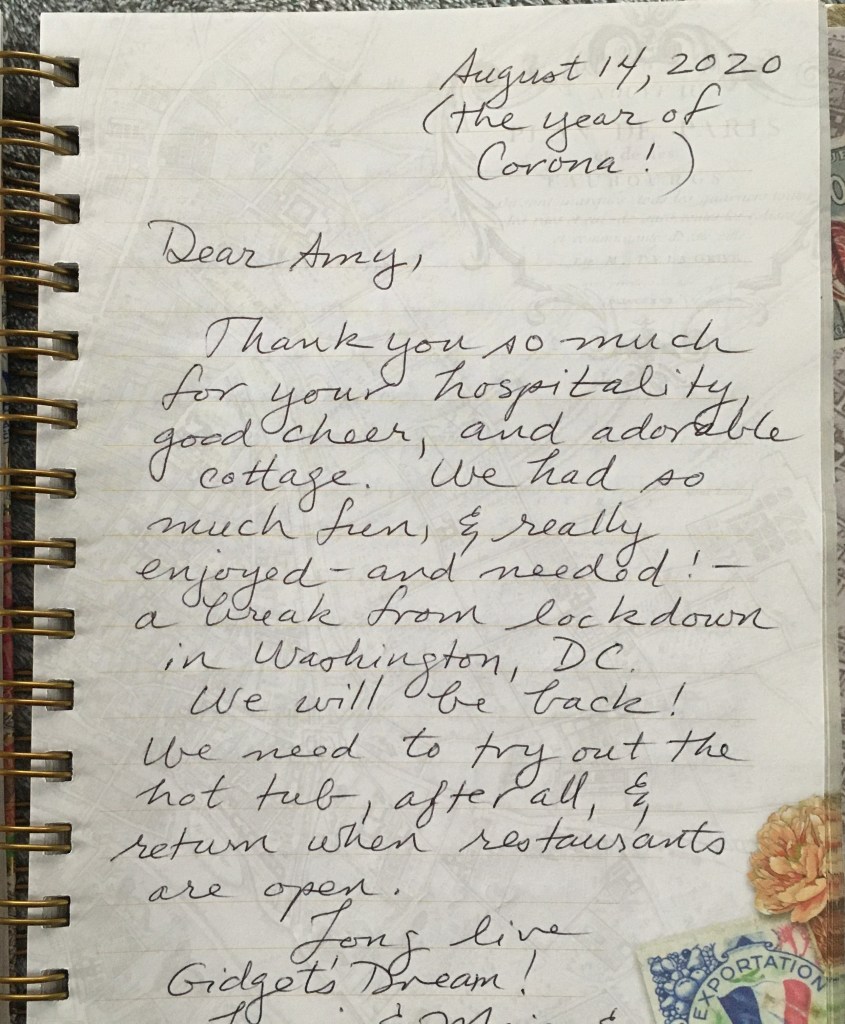 August 14, 2020
(the year of
Corona!)
Dear Amy,
Thank you so much
for your hospitality,
good cheer, and adorable
cottage. We had so
much fun, & really
enjoyed - and needed! -
a break from lockdown
in Washington, DC.
We will be back!
We need to try out the
hot tub, after all, &
return when restaurants
are open.
Long live
Gidget's Dream!
&
EXPORTATION